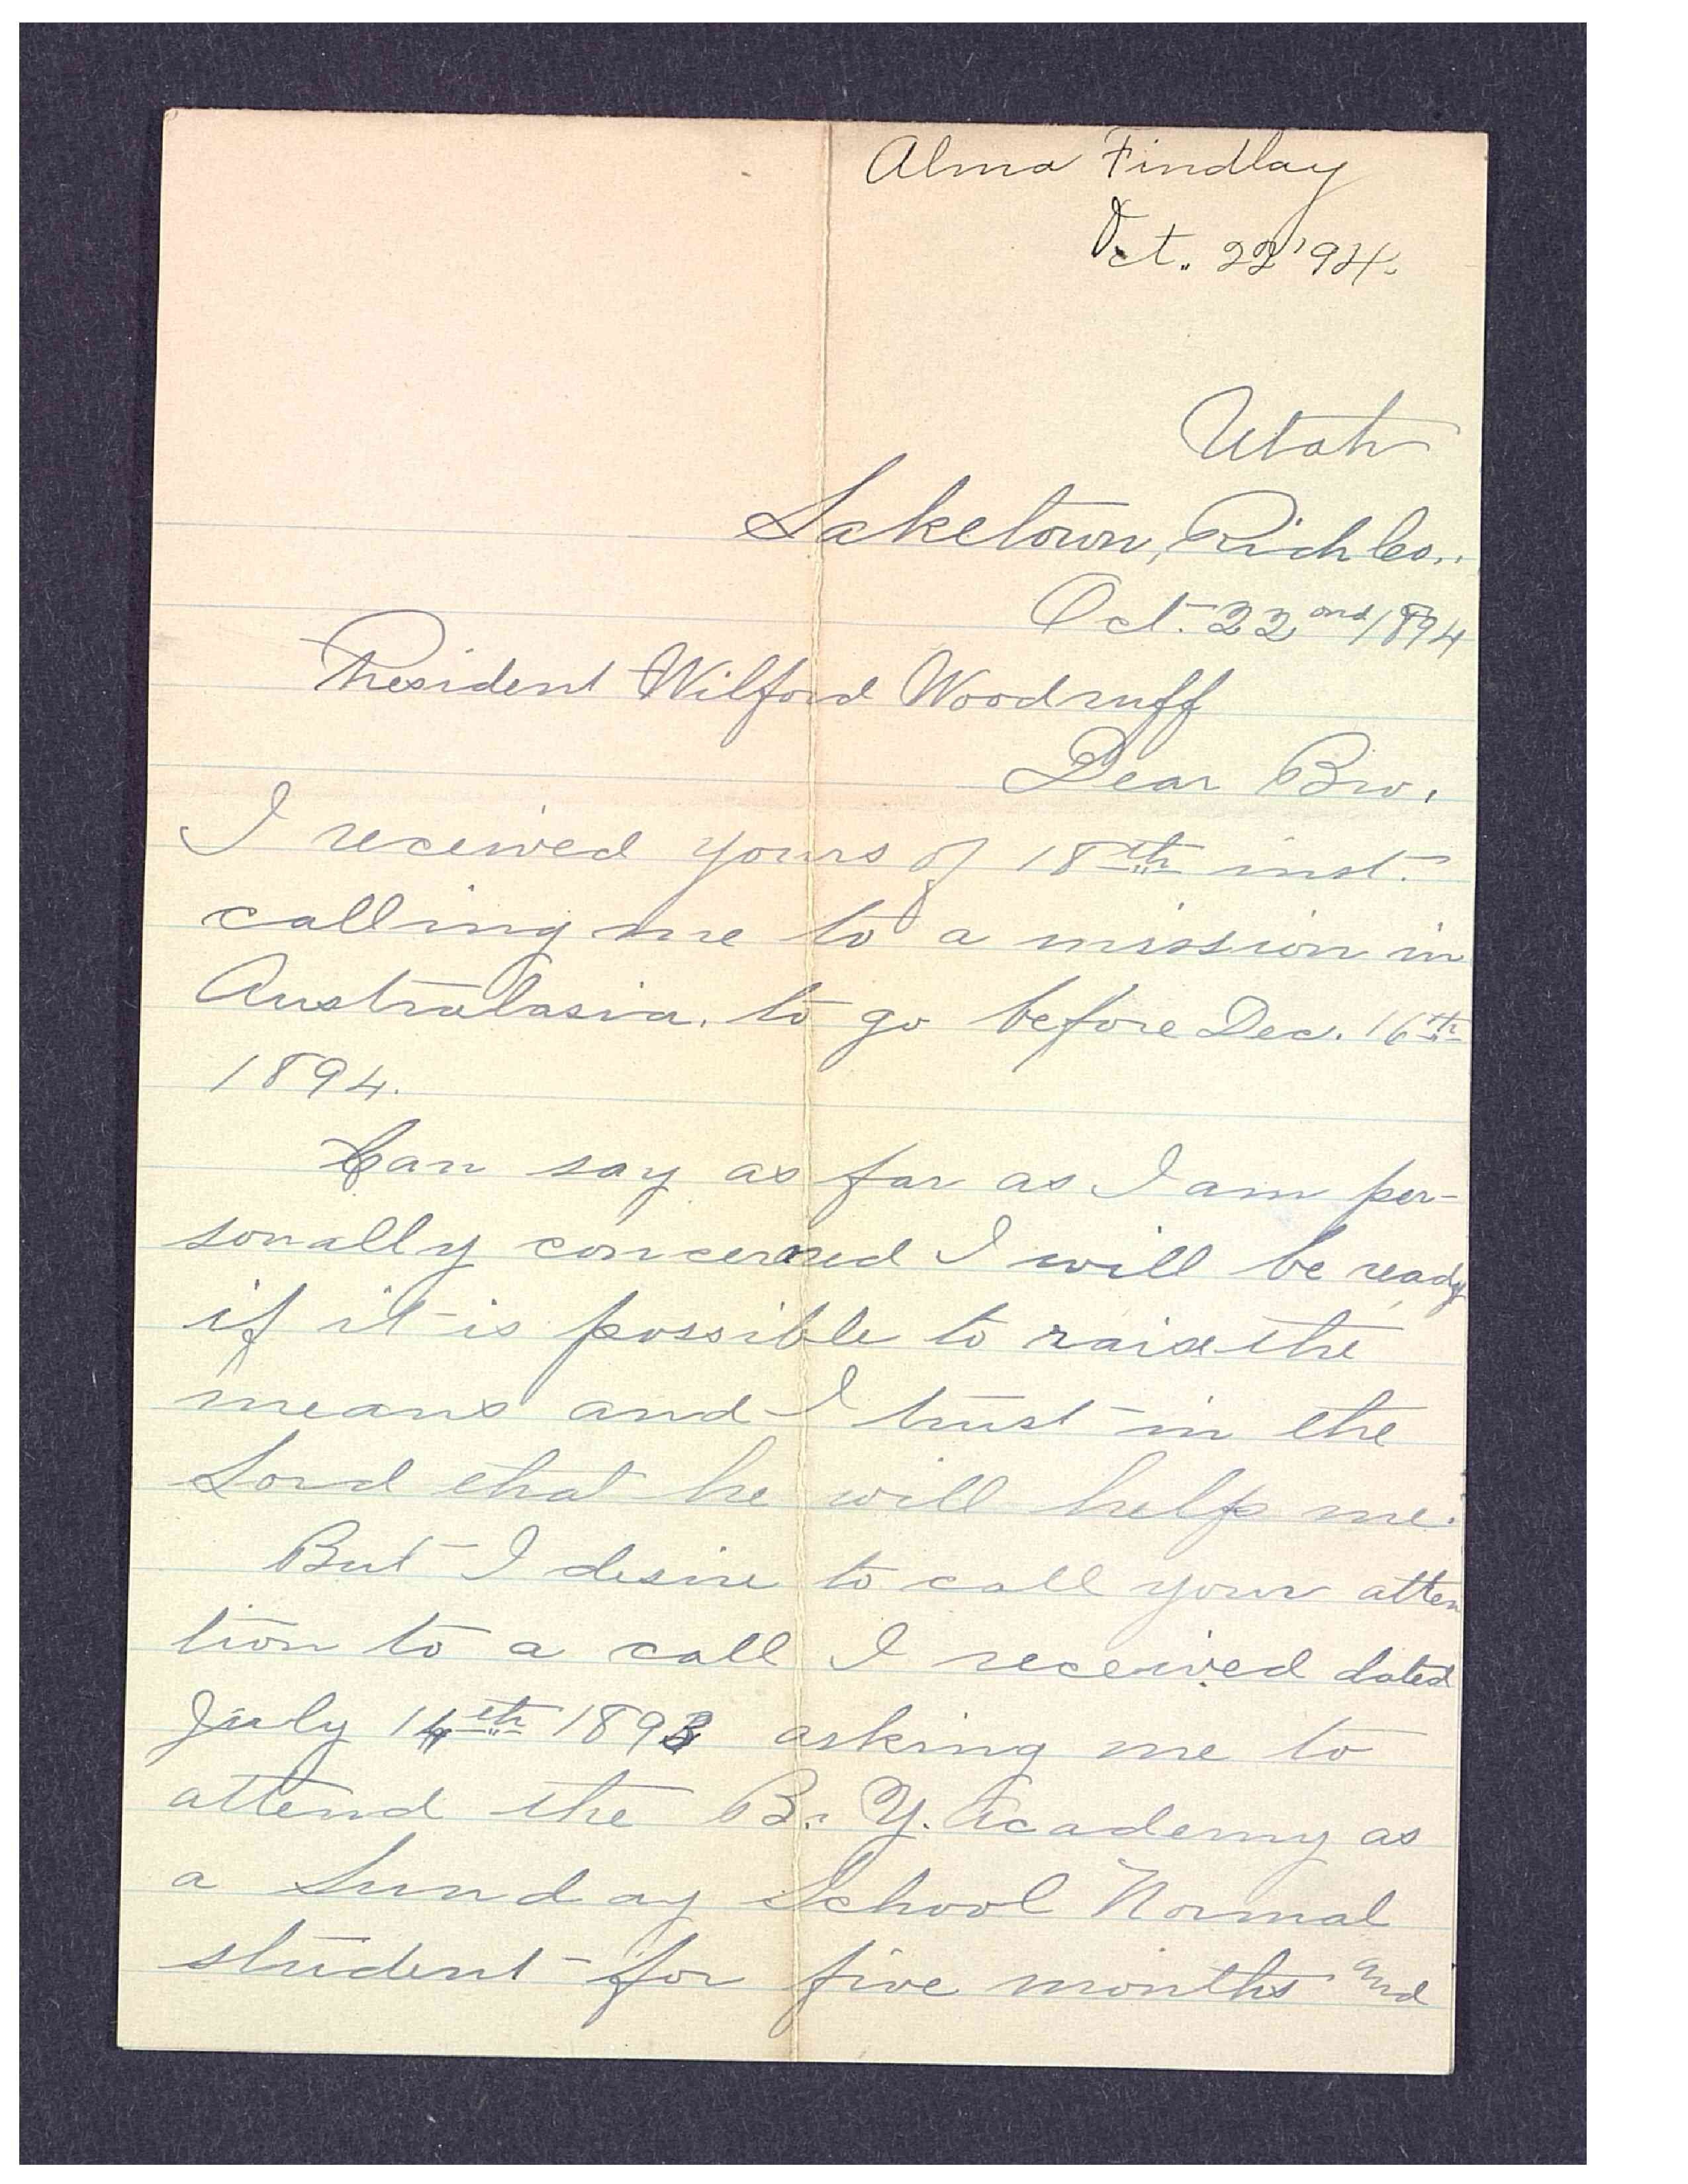 Alma Findlay
Oct. 22 '94.
Utah
Laketown, Rich Co..
Oct. 22nd 1894
President Wilford Woodruff
Dear Bro.
I received yours of 18th inst.
calling me to a mission in
Australasia. to go before Dec. 16th
1894.
Can say as far as I am per-
sonally concerned I will be ready
if it is possible to raise the
means and I trust in the
Lord that he will help me.
But I desire to call your atten
tion to a call I received dated
July 14th 1893 asking me to
attend the B. Y. Academy as
a Sunday School Normal
student for five months and